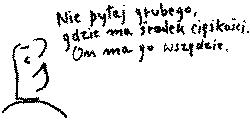 Nie pytaj grubego,
gdzie ma środek ciężkości.
On ma go wszędzie.